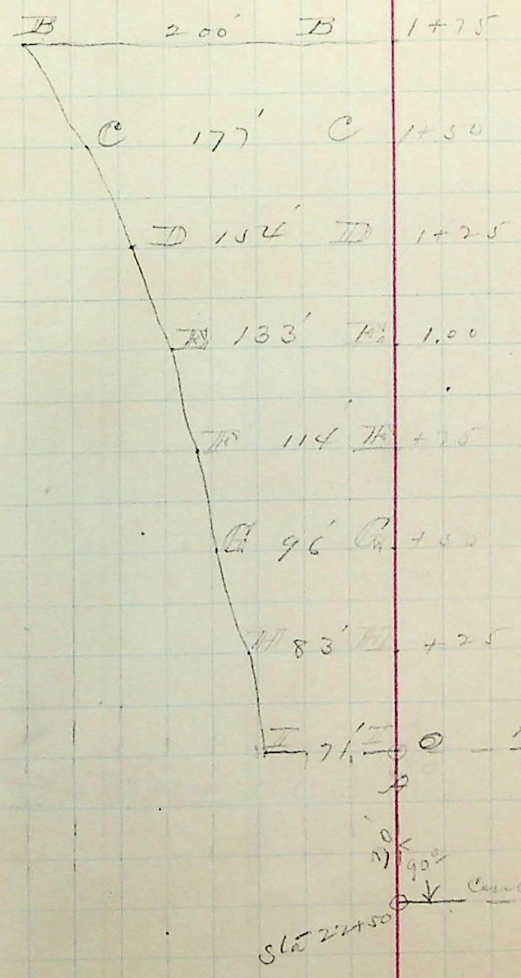 B 200' B 1+75
C 177' C 1+50
D 154' D 1+25
E 133' E 1.00
F 114' F +75
G 96' G +50
H 83' H +25
I 71' I 0
A
90°
Sta 22+50